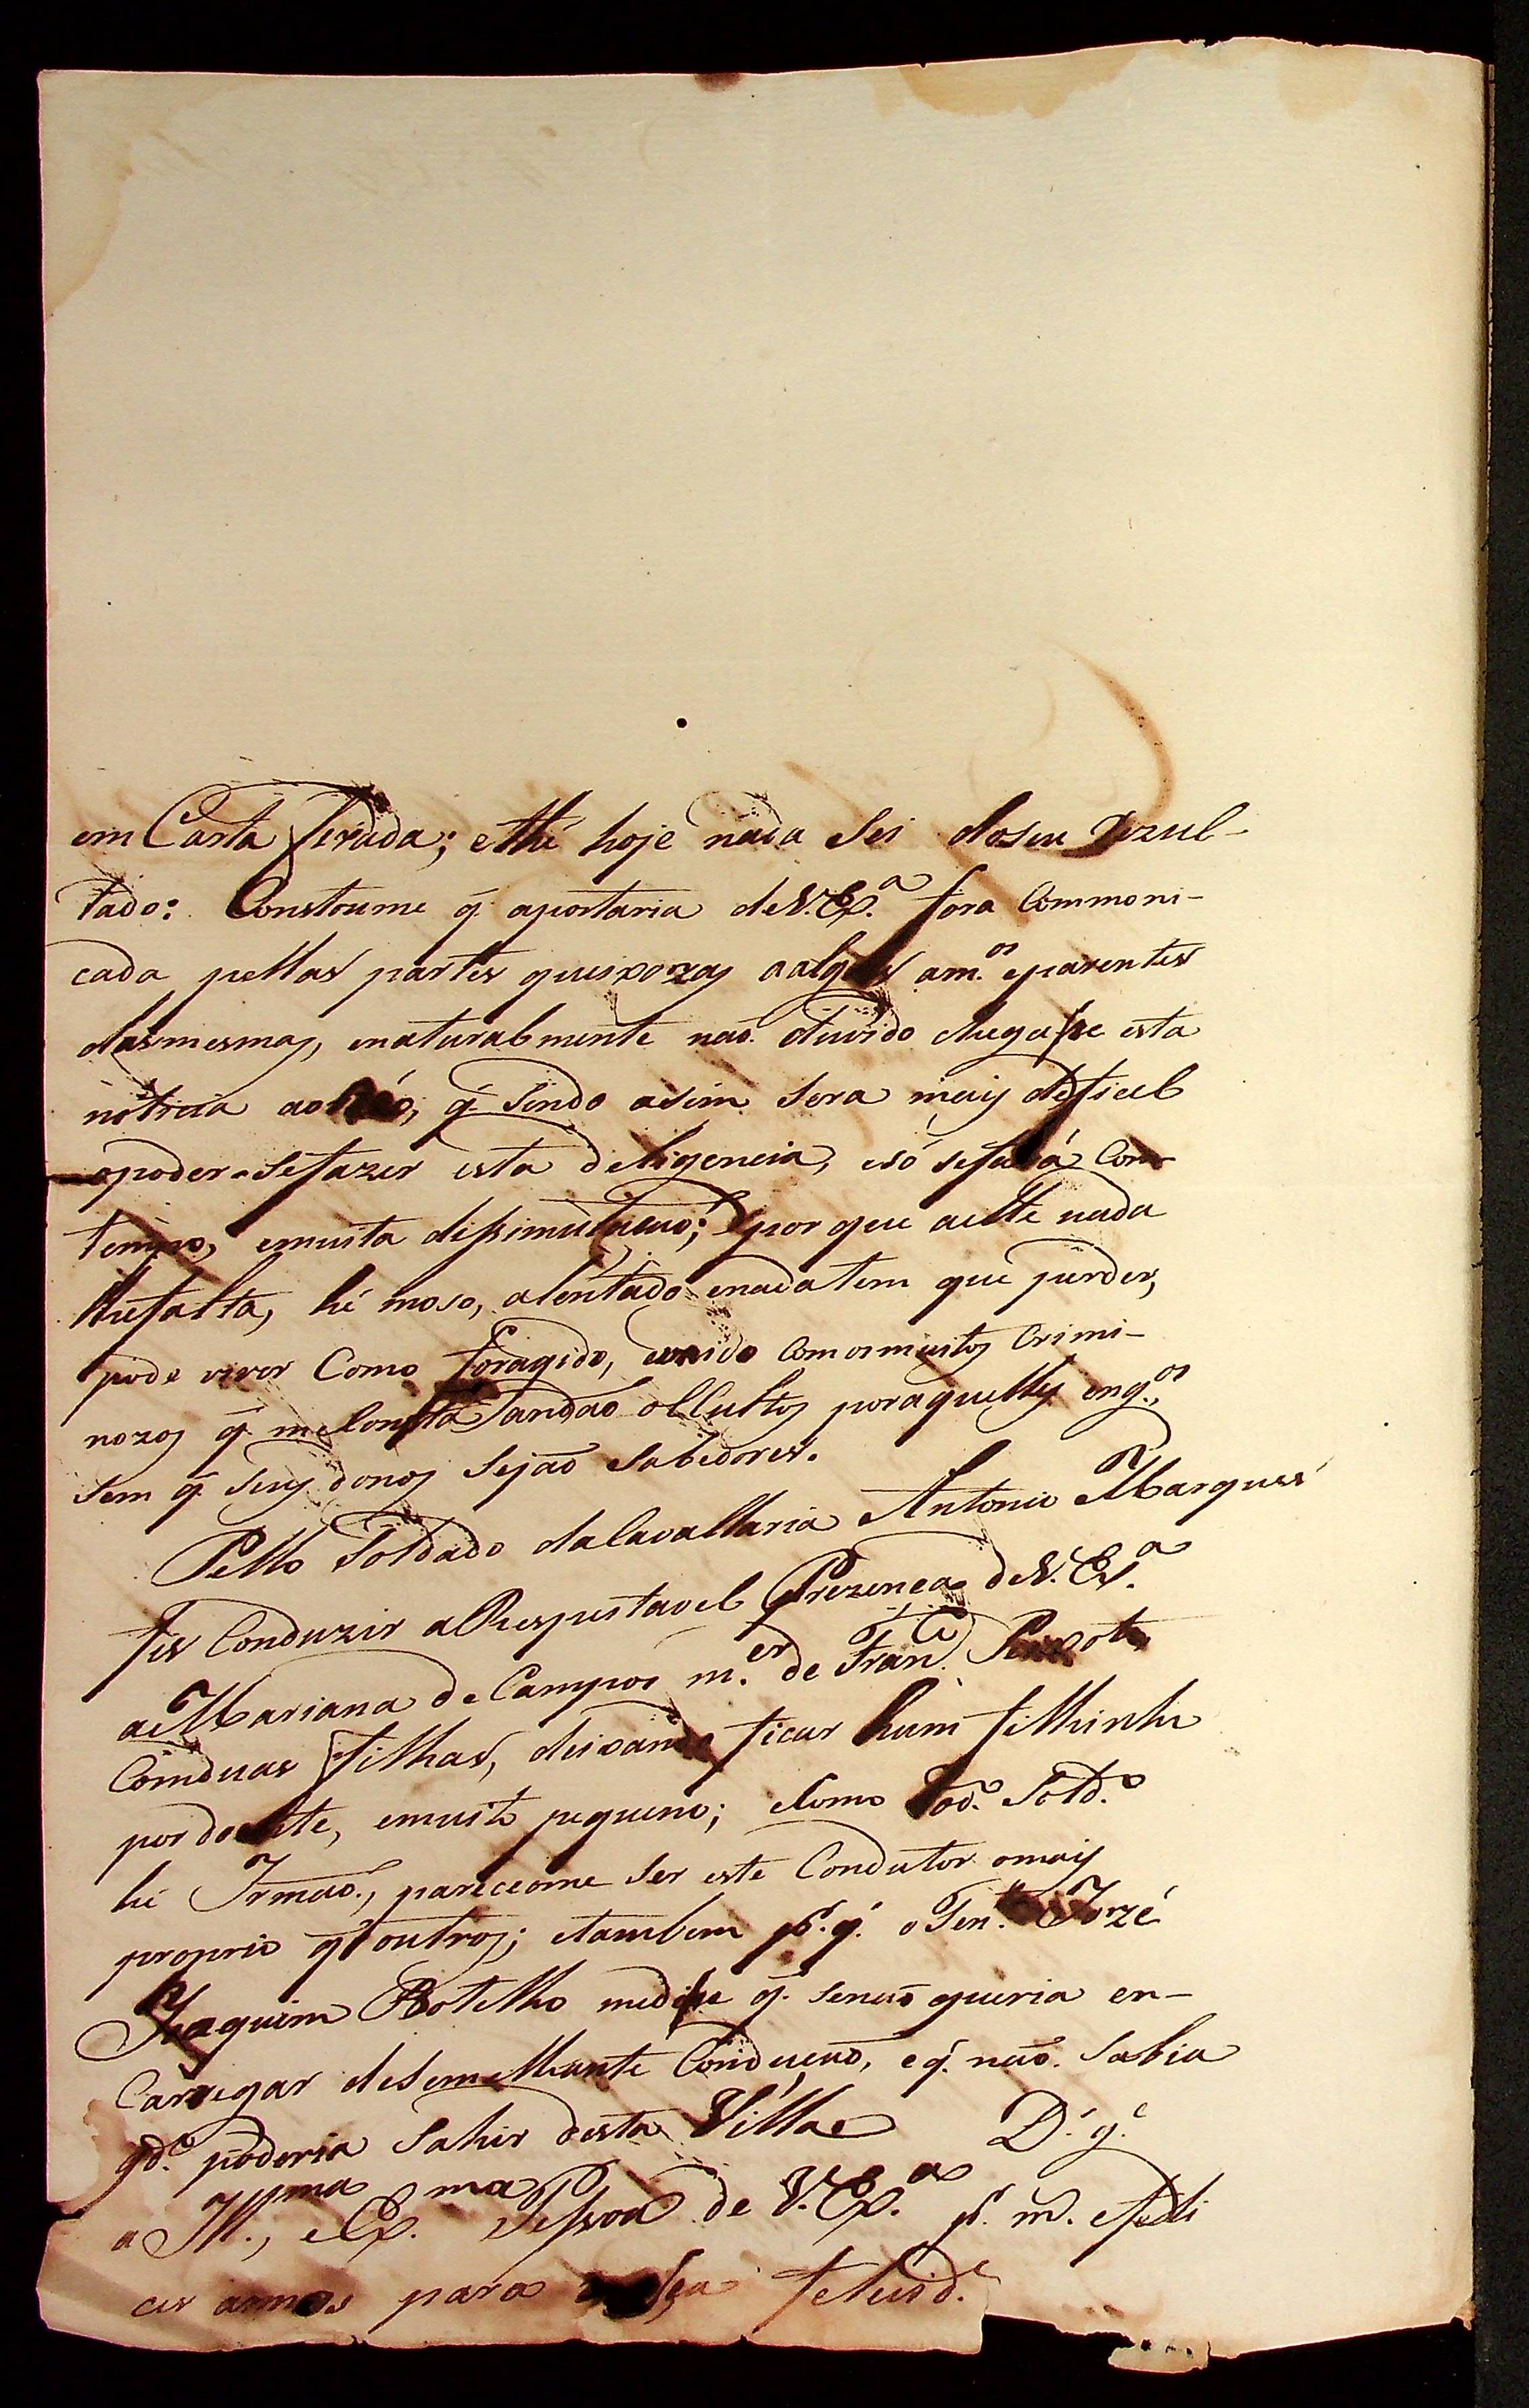 em Carta fexada; ethé hoje nada Sei doseu rezul-
tado: Constoume q̃ aportaria deV.Ex.ª fora Commoni-
cada pellas partes queixozas aalgũs am.os eparentes
dasmesmas, enaturalmente naõ duvido chegase esta
noticia aoRéo, q̃ Sendo asim Sera mais dificil
opoder-sefazer esta deligencia, esó sefará Com
tempo, emuita disimulacaõ; por que aelle nada
lhefalta, hé moso, alentado enadatem que perder,
pode viver Como foragido, eunido Comosmuitos Crimi-
nozos q̃ meConsta andaõ ocCultos poraquelles eng.os
Sem q̃ Seus donos Sejaõ Sabedores.
Pello Soldado daCavallaria Antonio Marques
fis Conduzir aRespeitavel Prezença deV.Ex.ª
aMariana deCampos m.er de Fran.co Peixoto
Comduas filhas, deixando ficar hum filhinho
pordoente, emuito pequeno; eComo od.º Sold.º
hé Irmaõ, pareceome Ser este Condutor omais
proprio q̃ outros; etambem p.r q̃ oTen.te Jozé
Joaquim Botelho medise q̃ Senaõ queria en-
Carregar deSemelhante Conduçaõ, eq̃ naõ Sabia
qd.º poderia Sahir desta Villa D.s g.e
a Ill.ma, eEx.ma Pessoa de V.Ex.ª p.r m.s efeli
ces annos para felicid.e